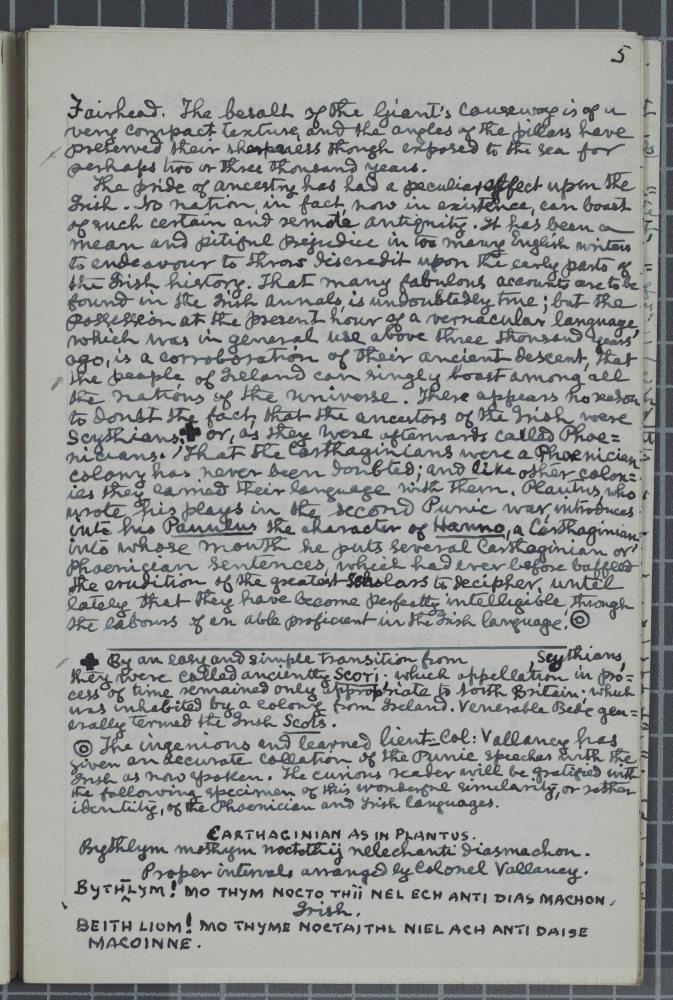 5
Fairhead. The besalt of the Giant's causeway is of a
very compact texture, and the angles of the pillars have
preserved their sharpness though exposed to the sea for
perhaps two or three thousand years.
The pride of ancestry has had a peculiar effect upon the
Irish. No nation, in fact, now in existence, can boast
of such certain and remote antiquity. It has been a
mean and pitiful prejudice in too many English writers
to endeavour to throw discredit upon the early parts of
the Irish history. That many fabulous accounts are to be
found in the Irish annals, is undoubtedly true; but the
possession at the present hour of a vernacular language,
which was in general use above three thousand years
ago, is a corroboration of their ancient descent, that
the people of Ireland can singly boast among all
the nations of the universe. There appears no reason
to doubt the fact, that the ancestors of the Irish were
Scythians ✚ or, as they were afterwards called Phoe=
nicians. That the Carthaginians were a Phoenician
colony has never been doubted; and like other colon=
ies they carried their language with them. Plautus, who
wrote his plays in the second Punic war, introduces
into his Panulus the character of Hanno, a Carthaginian
into whose mouth he puts several Carthaginian or
Phoenician sentences, which had ever before baffled
the erudition of the greatest scholars to decipher, until
lately that they have become perfectly intelligible through
the labours of an able proficient in the Irish language. ◎
✚ By an easy and simple transition from Scythians,
they were called anciently Scoti; which appellation in pro=
cess of time remained only appropriate to North Britain; which
was inhabited by a colony from Ireland. Venerable Bede gen=
erally termed the Irish Scots.
◎ The ingenious and learned lieut=Col: Vallancy has
given an accurate collation of the Punic speeches with the
Irish as now spoken. The curious reader will be gratified with
the following specimen of this wonderful similarity, or rather
identity, of the Phoenician and Irish languages.
CARTHAGINIAN AS IN PLANTUS.
Bythlym mothym noctothij nelechanti diasmachon.
Proper intervals arranged by Colonel Vallancy.
BYTHLYM! MO THYM NOCTO THII NEL ECH ANTI DIAS MACHON.
Irish.
BEITH LIOM! MO THYME NOCTAITHL NIEL ACH ANTI DAISE
MACOINNE.